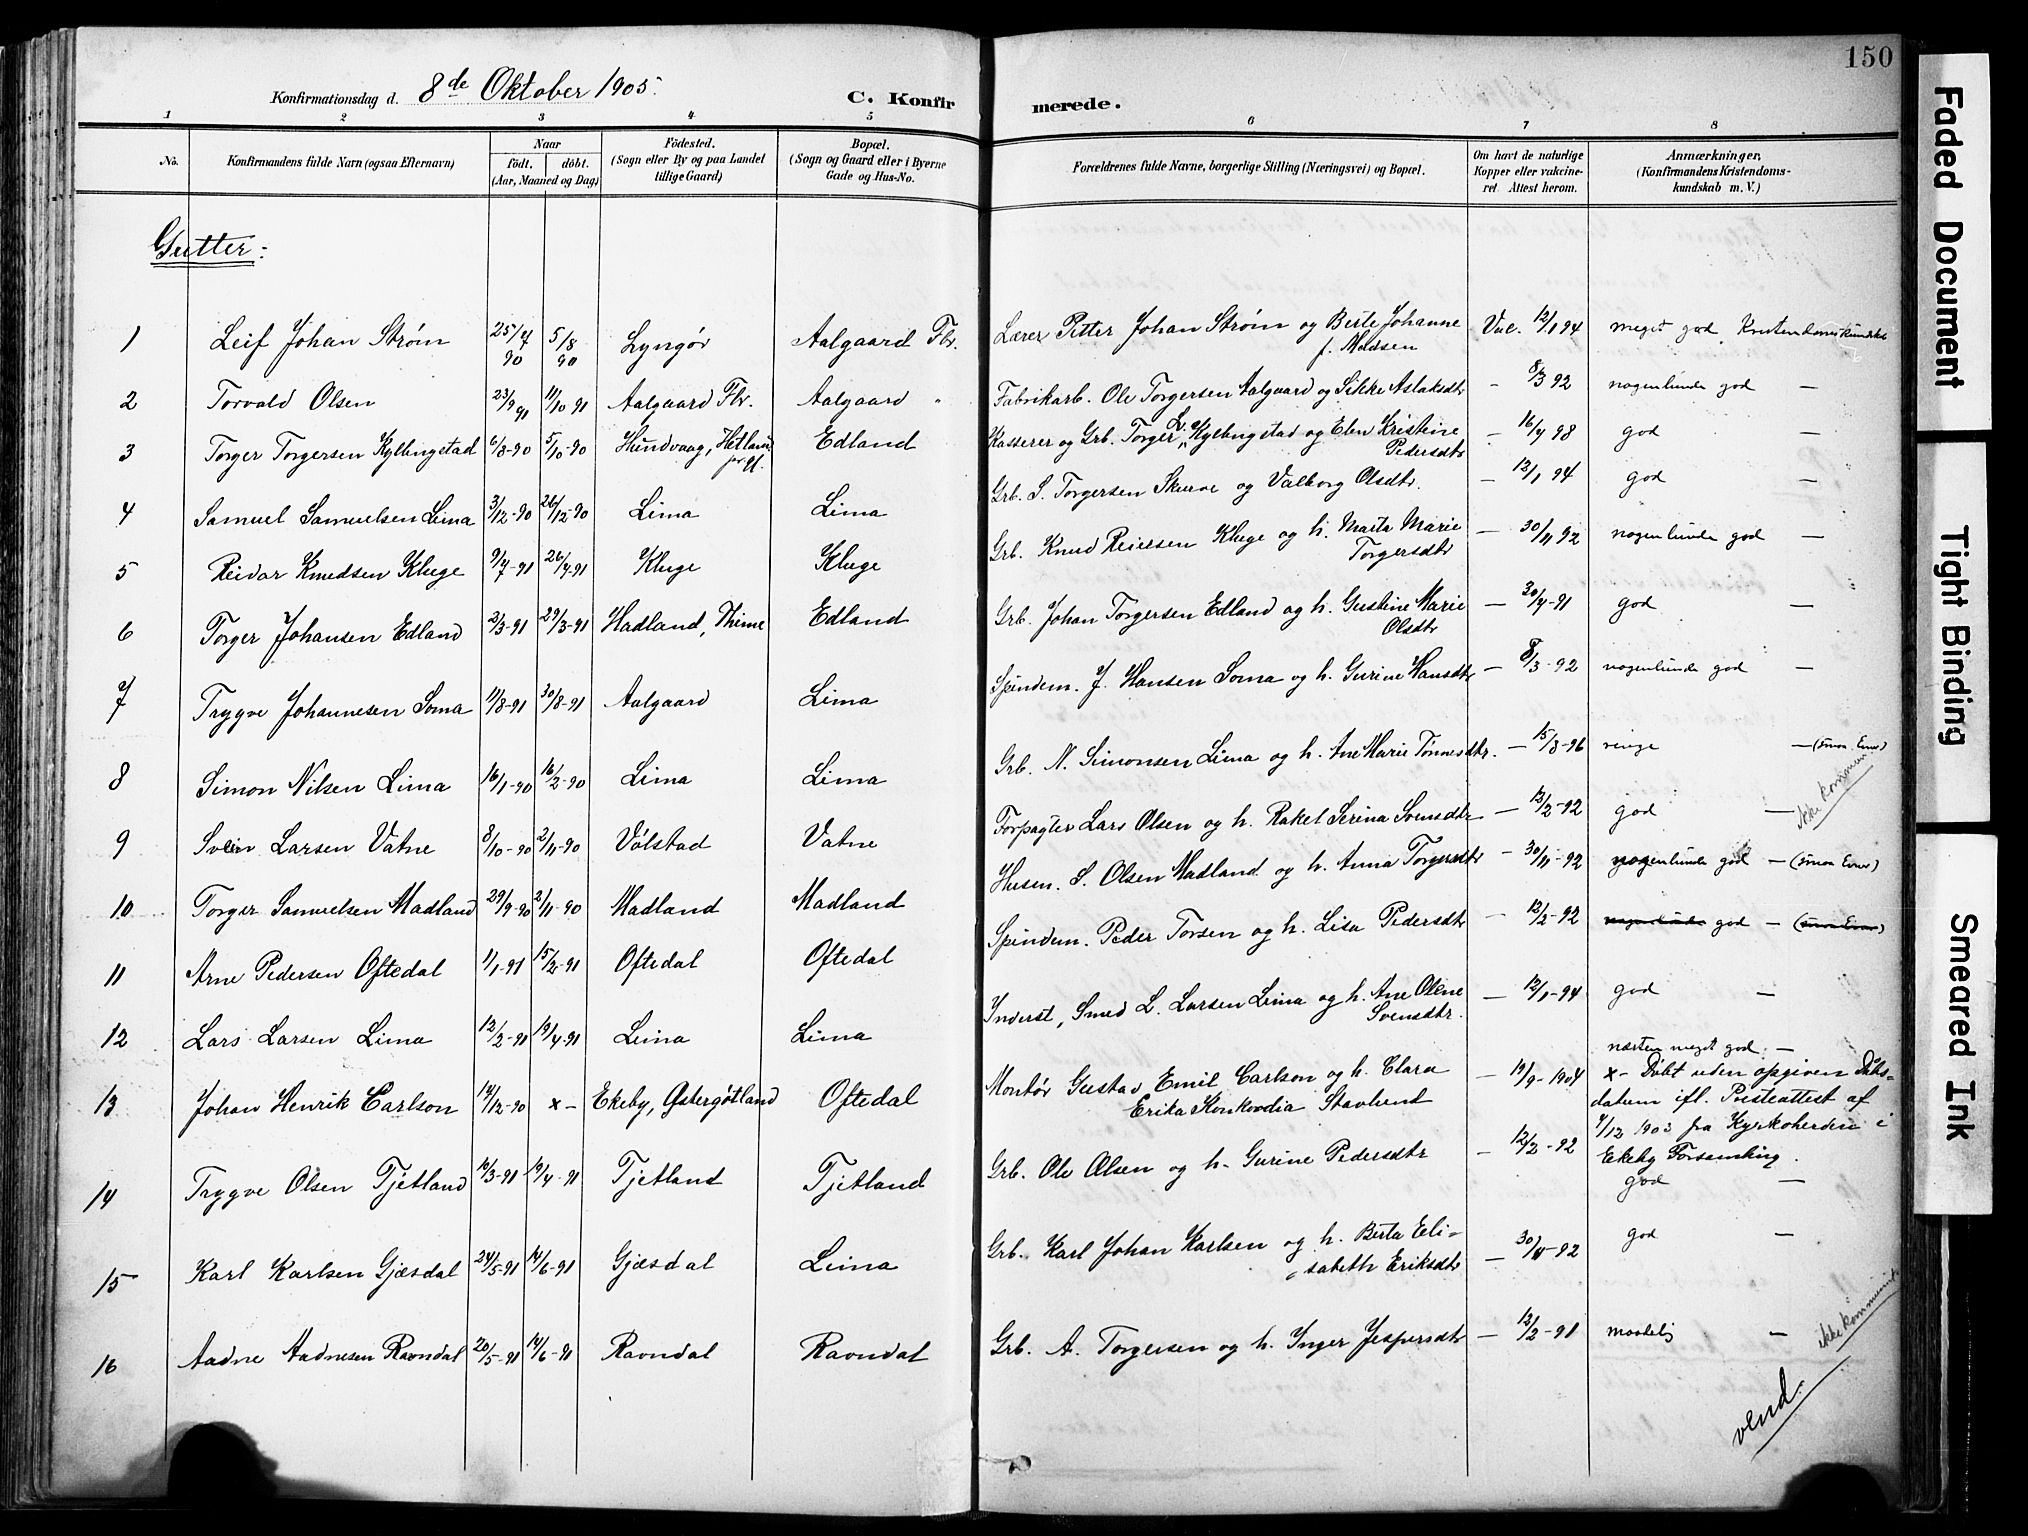 150
Konfirmationsdag d. 8de Oktober 1905.
C. Konfirmerede.
1 2 3 4 5 6 7 8
No.
Konfirmandens fulde Navn (ogsaa Efternavn)
Naar
födt. döbt.
(Aar, Maaned og Dag)
Födested.
(Sogn eller By og paa Landet
tillige Gaard)
Bopæl.
(Sogn og Gaard eller i Byerne
Gade og Hus-No.
Forældrenes fulde Navne, borgerlige Stilling (Næringsvei) og Bopæl.
Om havt de naturlige
Kopper eller vakcine-
ret. Attest herom.
Anmærkninger,
(Konfirmandens Kristendoms-
kundskab m. V.)
Gutter:
1 Leif Johan Strøm 25/4 90 5/8 90 Lyngør Aalgaard Fbr. Lærer Petter Johan Strøm og Birte Johanne Vac. 12/1 94 meget god Kristendomskundskab
f. Madsen
2 Torvald Olsen 23/9 91 11/10 91 Aalgaard Fbr. Aalgaard " Fabrikarb. Ole Torgersen Aalgaard og Sikke Aslaksdtr – 8/3 92 nogenlunde god –
3 Torger Torgersen Kyllingstad 6/8-90 5/10-90 Hundvaag, Hetland Edland Kasserer og Grb. Torger L. Kyllingstad og Elen Kristine – 16/4 98 god –
prgj. Pedersdtr
4 Samuel Samuelsen Lima 3/12-90 26/12-90 Lima Lima Grb. S. Torgersen Skurve og Valborg Olsdtr. – 12/1 94 god –
5 Reidar Knudsen Kluge 9/4-91 26/4-91 Kluge Kluge Grb. Knud Reiersen Kluge og h. Marta Marie – 30/11 92 nogenlunde god –
Torgersdtr
6 Torger Johansen Edland 2/3-91 29/3-91 Hadland, Thime Edland Grb. Johan Torgersen Edland og h. Gustine Marie – 30/4-91 god –
Olsdtr
7 Trygve Johannesen Soma 11/8-91 30/8-91 Aalgaard Lima Spindem. J. Hansen Soma og h. Gurine Hansdtr – 8/3-92 nogenlunde god –
8 Simon Nilsen Lima 16/1-90 16/2-90 Lima Lima Grb. N. Simonsen Lima og h. Ane Marie Tønnesdtr. – 15/3-96 ringe – (smaa Evner)
ikke kommun.
9 Svein Larsen Vatne 8/10-90 2/11-90 Vølstad Vatne Forpagter Lars Olsen og h. Rakel Serina Svensdtr – 12/2-92 god –
10 Torger Samuelsen Madland 29/9-90 2/11-90 Madland Madland Husm. S. Olsen Madland og h. Anna Torgersdtr – 30/11-92 nogenlunde god – (smaa Evner)
11 Arne Pedersen Oftedal 11/1-91 15/2-91 Oftedal Oftedal Spindem. Peder Torsen og h. Lisa Pedersdtr – 12/2-92 nogenlunde god – (smaa Evner)
12 Lars Larsen Lima 12/2-91 19/4-91 Lima Lima Inderst, Smed L. Larsen Lima og h. Ane Oline – 12/1-94 god –
Svensdtr.
13 Johan Henrik Carlson 14/12-90 x- Ekeby, Østergøtland Oftedal Montør Gustav Emil Carlson og h. Clara – 19/9-1904 næsten meget god –
Erika Konkordia Stavlund
x- Døbt uden opgiven Dåbs-
datum ifl. Presteattest af
4/12 1903 fra Kyrkoherden i
Ekeby Forsamling.
14 Trygve Olsen Tjetland 16/3-91 19/4-91 Tjetland Tjetland Grb. Ole Olsen og h. Gurine Pedersdtr – 12/2-92 god –
15 Karl Karlsen Gjæsdal 24/5-91 14/6-91 Gjæsdal Lima Grb. Karl Johan Karlsen og h. Berta Eli- – 30/11-92 god –
sabeth Eriksdtr
16 Aadne Aadnesen Ravndal 20/5-91 14/6-91 Ravndal Ravndal Grb. A. Torgersen og h. Inger Jespersdtr – 12/2-91 maadelig –
ikke kommunic.
vend.
Faded Document
Tight Binding
Smeared Ink